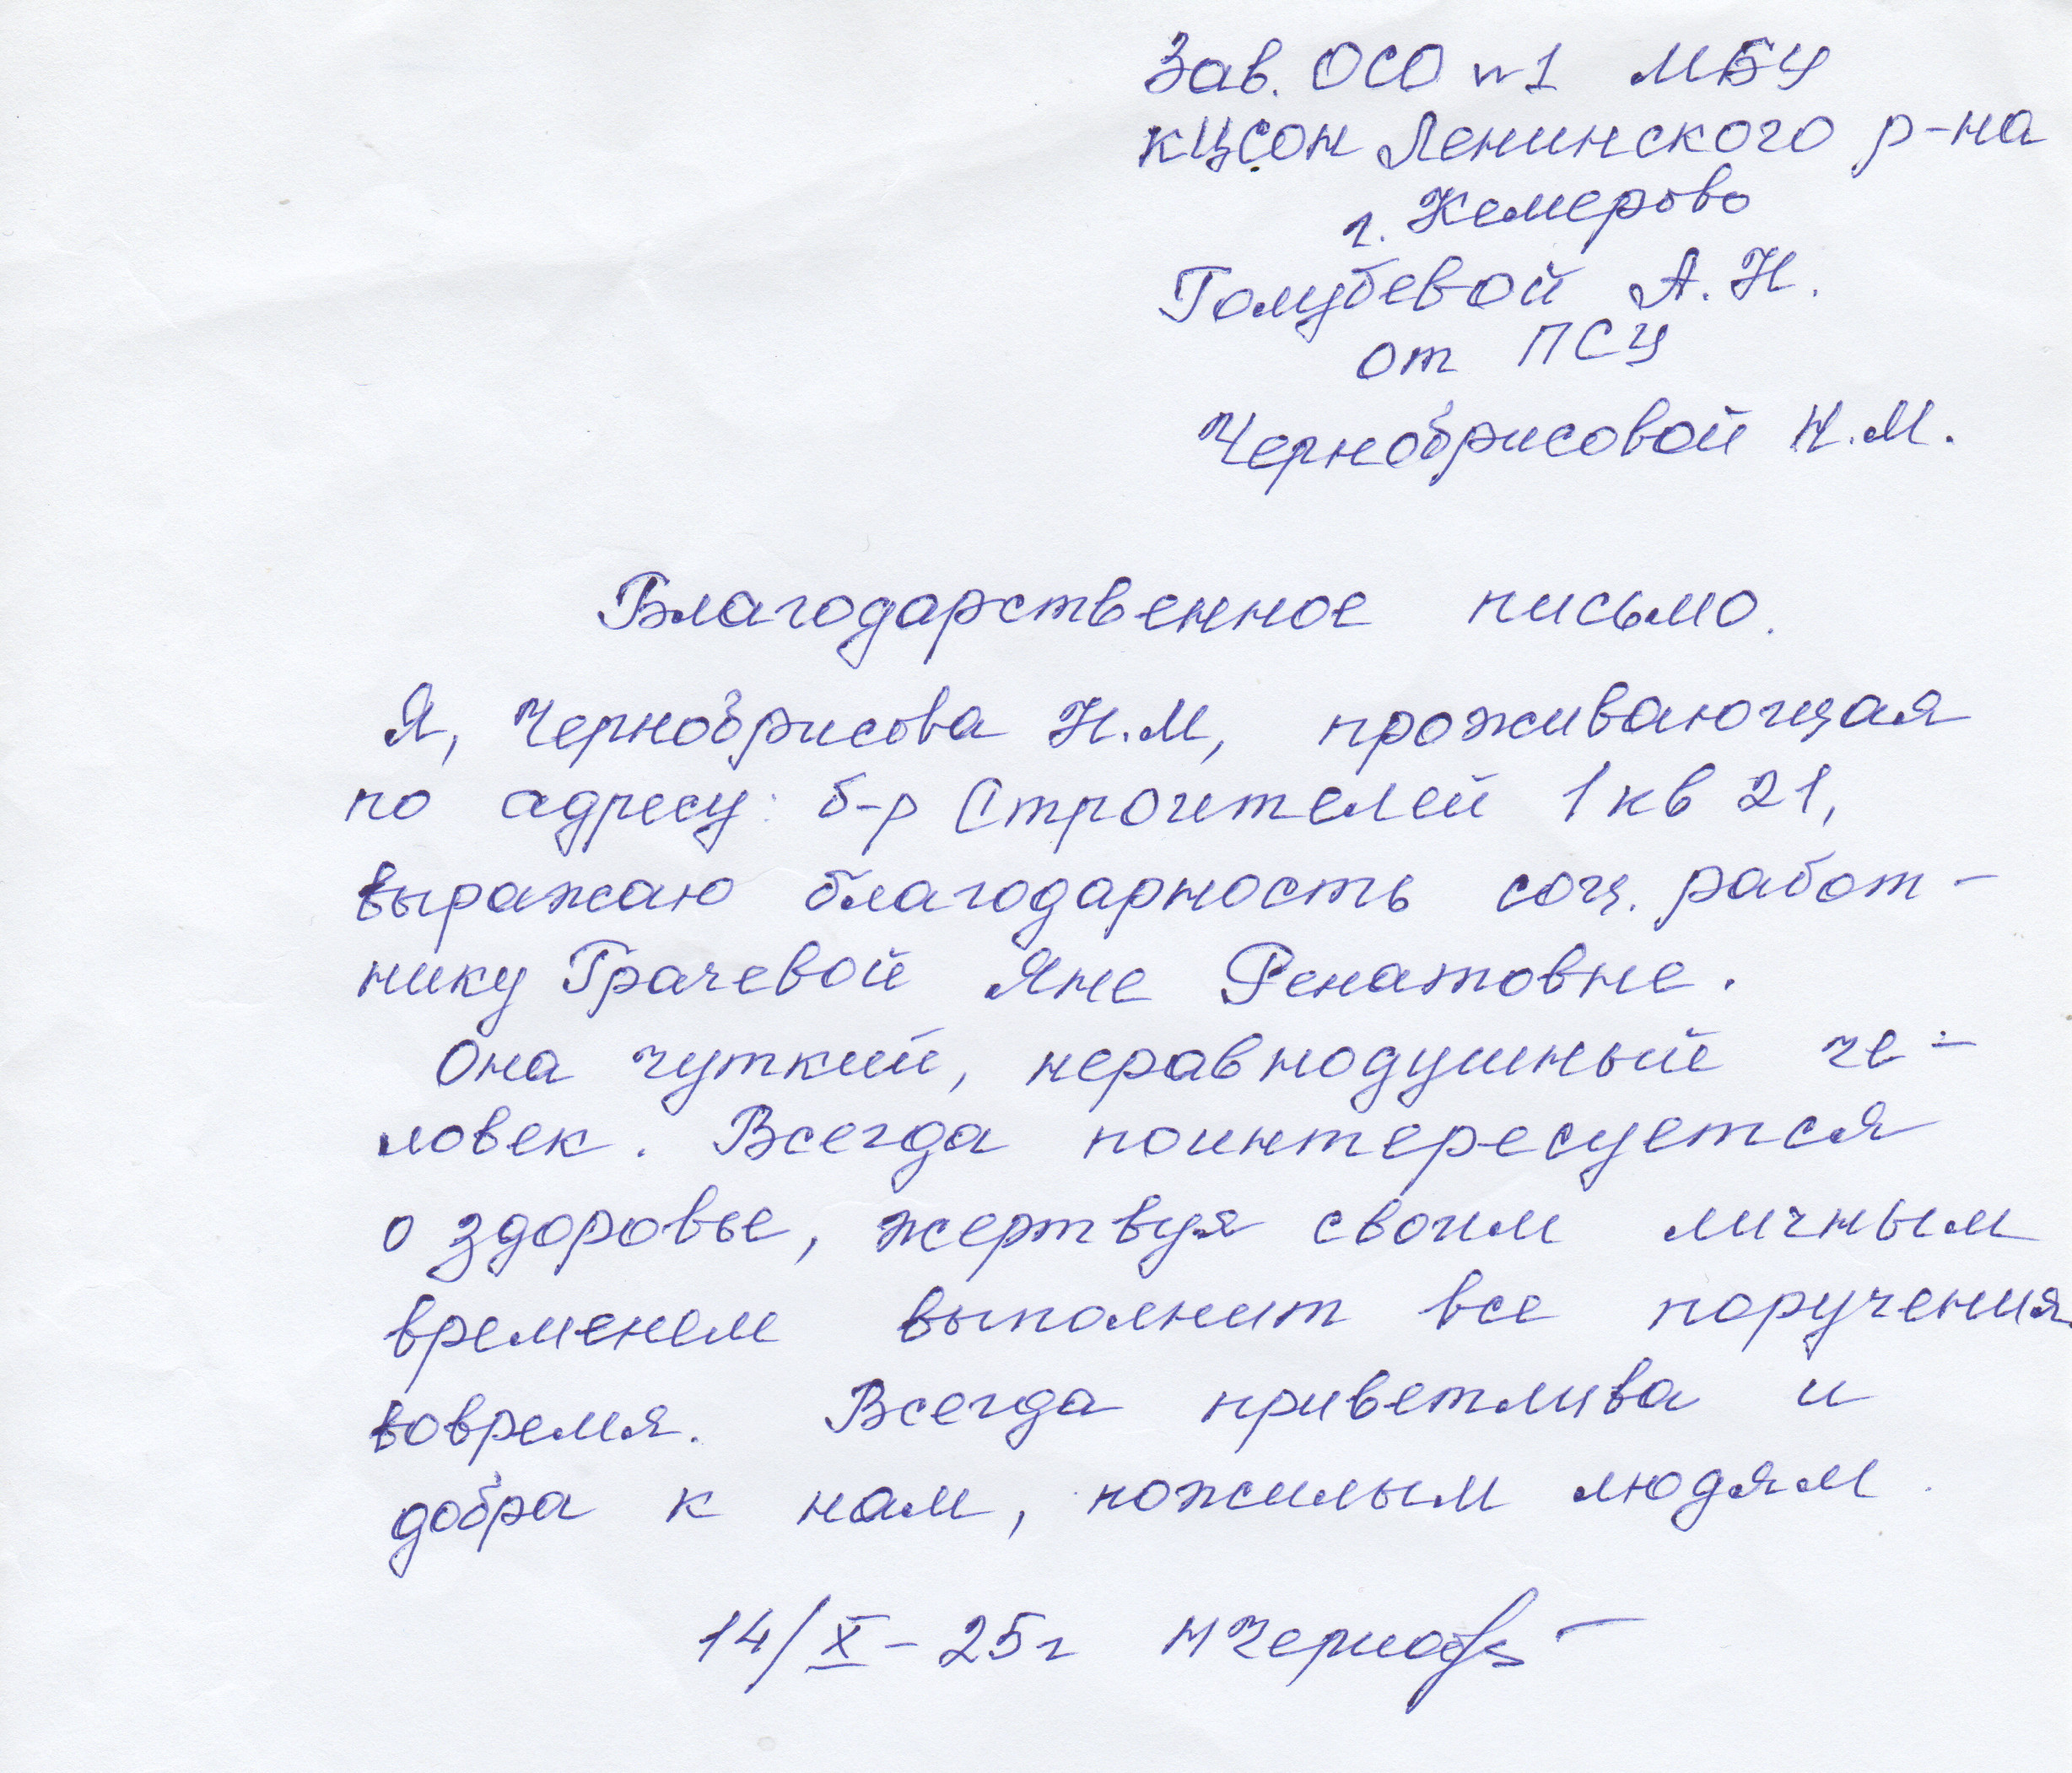 Зав. ОСО №1 МБУ
КЦСОН Ленинского р-на
г. Кемерово
Голубевой А.Н.
от ПСУ
Чернобрисовой Н.М.
Благодарственное письмо.
Я, Чернобрисова Н.М, проживающая
по адресу: б-р Строителей 1 кв 21,
выражаю благодарность соц. работ-
нику Грачевой Яне Ренатовне.
Она чуткий, неравнодушный че-
ловек. Всегда поинтересуется
о здоровье, жертвуя своим личным
временем выполнит все поручения
вовремя. Всегда приветлива и
добра к нам, пожилым людям.
14/X-25г НЧерноб